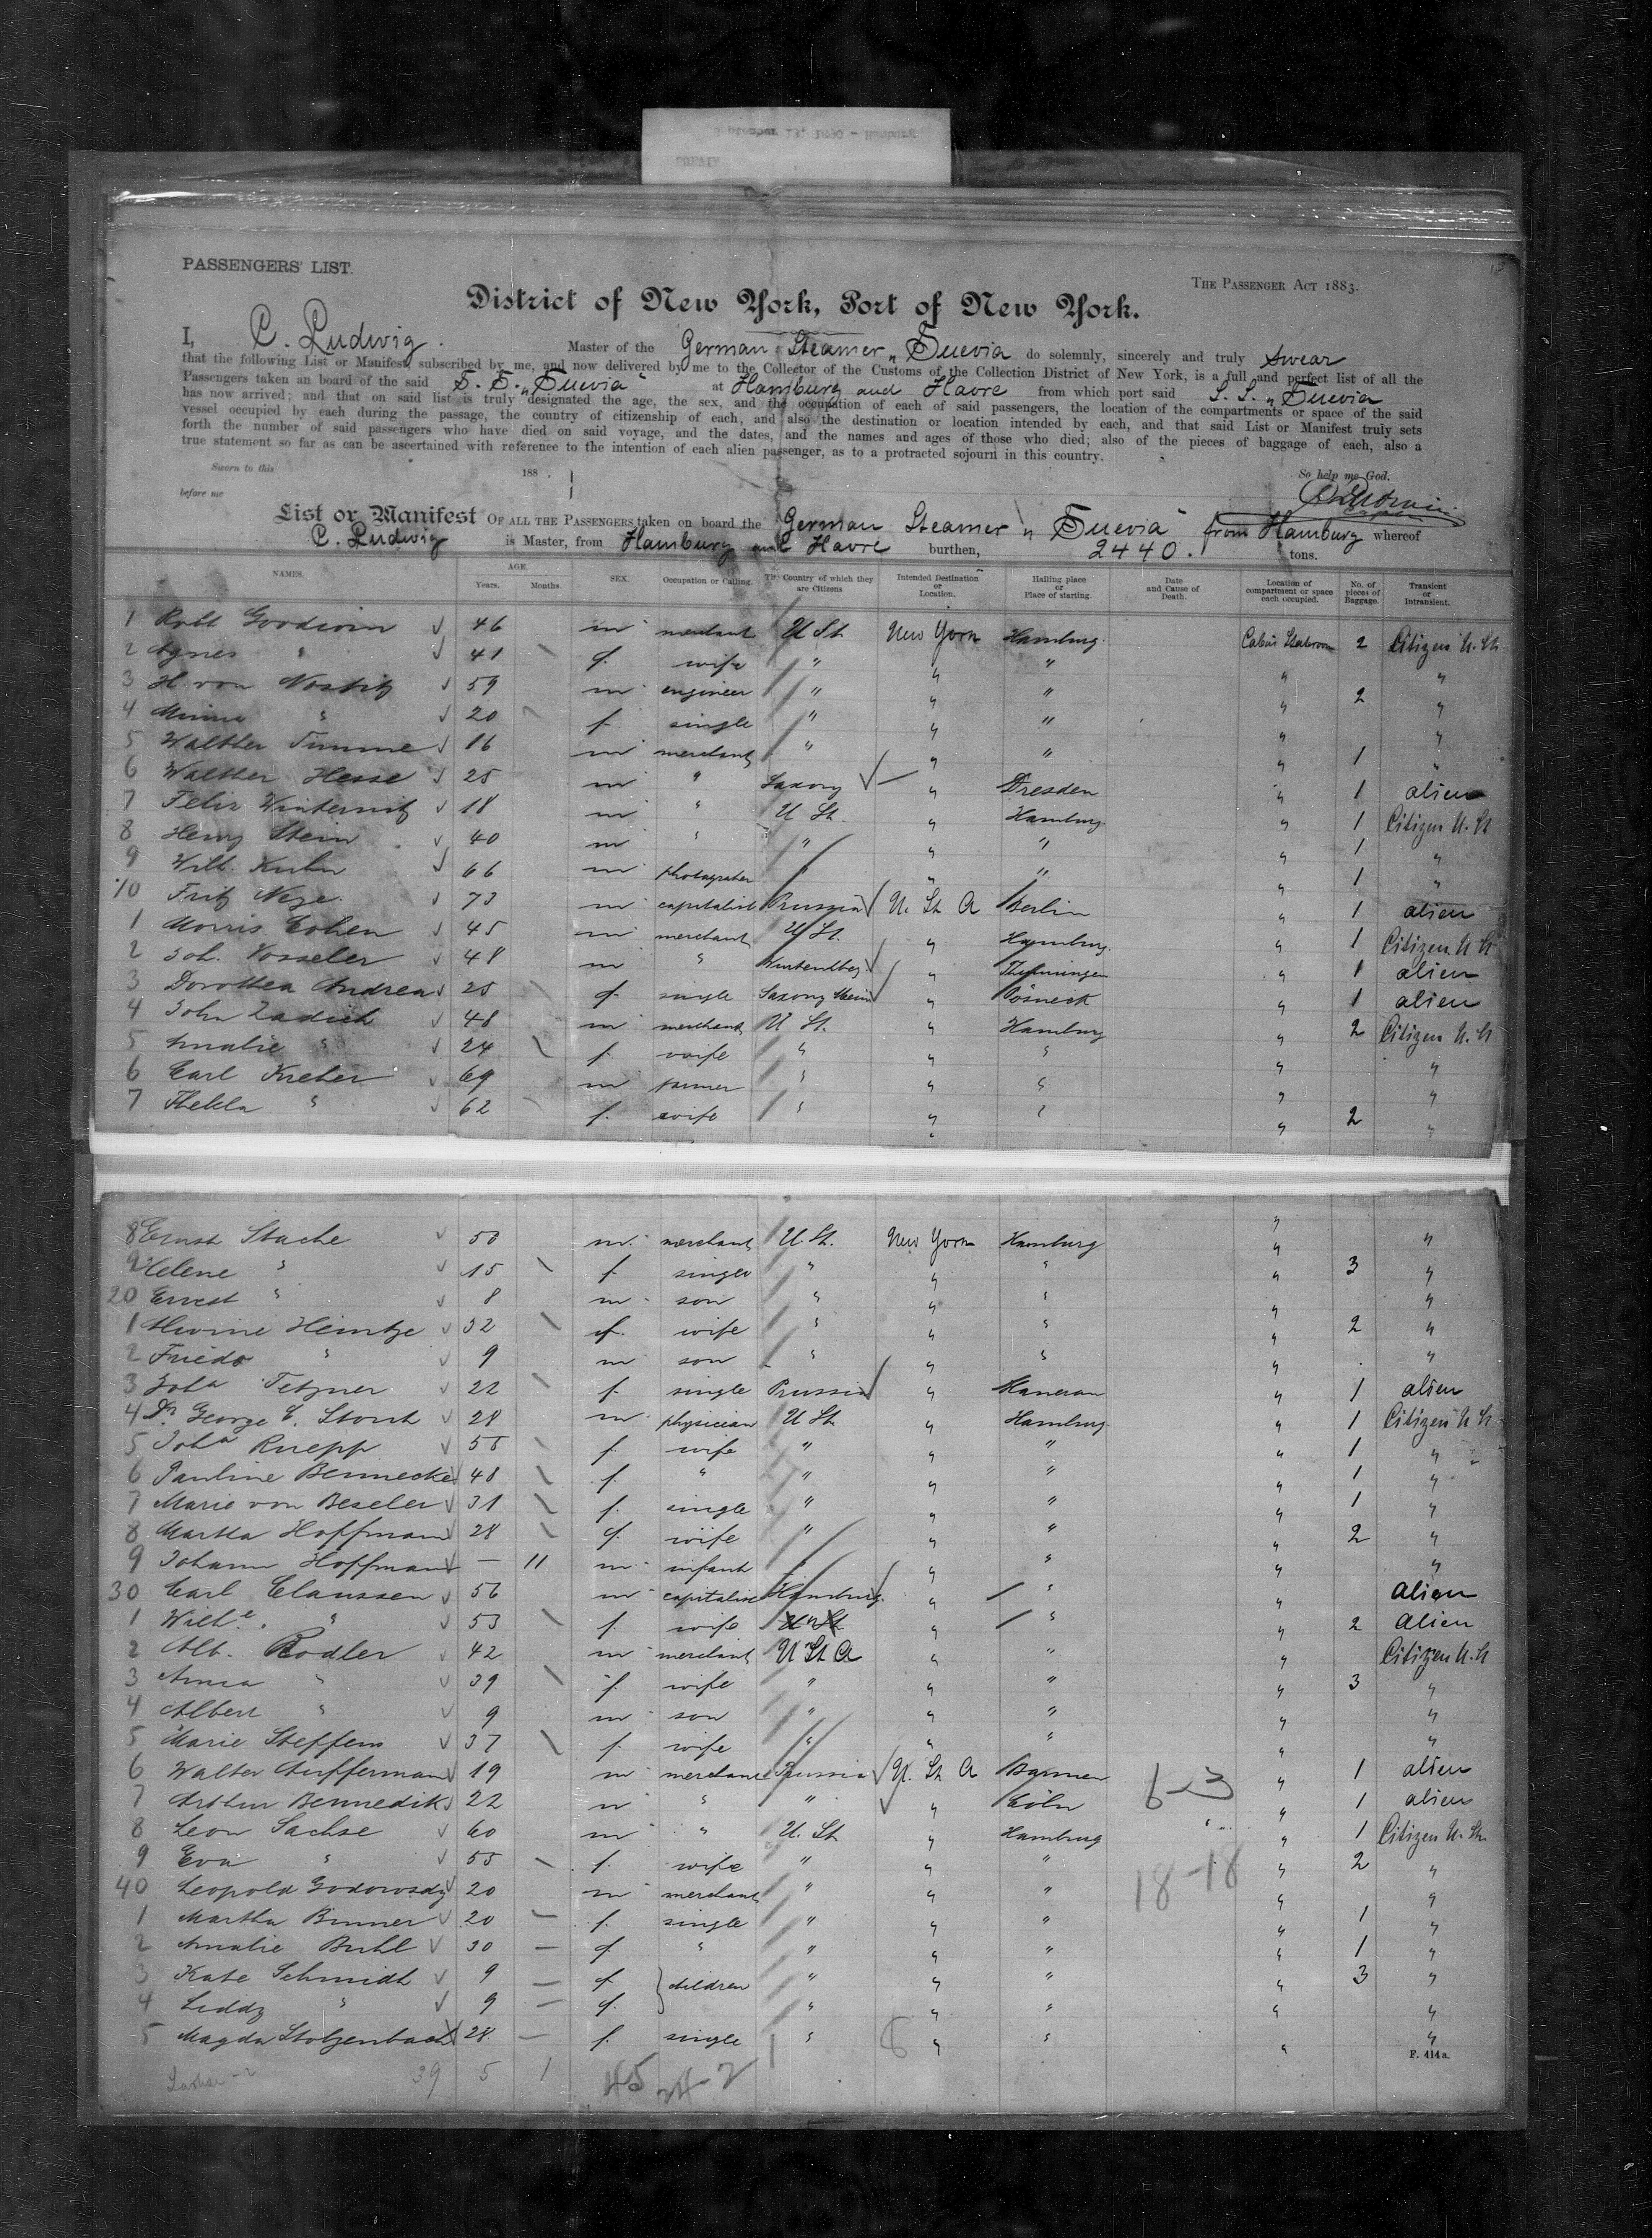 September 13, 1890 - Hamburg
SUEVIA
PASSENGERS' LIST.
THE PASSENGER ACT 1883.
District of New York, Port of New York.
I, C. Ludwig. Master of the German Steamer „Suevia do solemnly, sincerely and truly swear
that the following List or Manifest, subscribed by me, and now delivered by me to the Collector of the Customs of the Collection District of New York, is a full and perfect list of all the
Passengers taken an board of the said S. S. „Suevia" at Hamburg and Havre from which port said S. S. „Suevia
has now arrived; and that on said list is truly designated the age, the sex, and the occupation of each of said passengers, the location of the compartments or space of the said
vessel occupied by each during the passage, the country of citizenship of each, and also the destination or location intended by each, and that said List or Manifest truly sets
forth the number of said passengers who have died on said voyage, and the dates, and the names and ages of those who died; also of the pieces of baggage of each, also a
true statement so far as can be ascertained with reference to the intention of each alien passenger, as to a protracted sojourn in this country.
Sworn to this 188 . So help me God.
before me
List or Manifest OF ALL THE PASSENGERS taken on board the German Steamer „Suevia" from Hamburg whereof
C. Ludwig is Master, from Hamburg and Havre burthen, 2440. tons.
NAMES. AGE. Years. Months. SEX. Occupation or Calling. The Country of which they are Citizens Intended Destination or Location. Hailing place or Place of starting. Date and Cause of Death. Location of compartment or space each occupied. No. of pieces of Baggage. Transient or Intransient.
1 Robt Goodwin 46 m merchant U St. New York Hamburg Cabin Stateroom 2 Citizen U. St
2 Agnes " 41 f. wife " " " " "
3 H. von Nostitz 59 m engineer " " " " 2 "
4 Minna " 20 f. single " " " " "
5 Walther Timme 16 m merchant " " " " 1 "
6 Walther Hesse 25 m " Saxony " Dresden " 1 alien
7 Felix Winternitz 18 m " U St. " Hamburg " 1 Citizen U. St
8 Henry Stein 40 m " " " " " 1 "
9 Wilh. Kuhn 66 m photographer " " " " 1 "
10 Fritz 73 m capitalist Prussia U. St A Berlin " 1 alien
1 Morris Cohen 45 m merchant U St. " Hamburg. " 1 Citizen U St
2 Joh. Vosseler 48 m " Wurtemberg " Thuningen " 1 alien
3 Dorothea Andreas 25 f. single Saxony Mein " Pösneck " 1 alien
4 John Zadick 48 m merchant U St. " Hamburg " 2 Citizen U. St
5 Amalie " 24 f. wife " " " " "
6 Carl Kreher 69 m farmer " " " " "
7 Thekla " 62 f. wife " " " " 2 "
8 Ernst Stache 50 m. merchant U. St. New York Hamburg " "
9 Helene " 15 f. single " " " " 3 "
20 Ernest " 8 m son " " " " "
1 Alwine Heintze 32 f. wife " " " " 2 "
2 Friedo " 9 m son " " " " "
3 Joha Tetzner 22 f. single Prussia " Hanerau " 1 alien
4 Dr. George C. Storch 28 m physician U St " Hamburg " 1 Citizen U St
5 Joha Ruepp 55 f. wife " " " " 1 "
6 Pauline Bennecke 48 f. " " " " " 1 "
7 Marie von Beseler 31 f. single " " " " 1 "
8 Martha Hoffmann 28 f. wife " " " " 2 "
9 Johann Hoffmann — 11 m infant " " " " "
30 Carl Claussen 56 m capitalist Hamburg. " " " Alien
1 Wilhe. " 53 f. wife U St " " " 2 Alien
2 Alb. Rodler 42 m merchant U St A " " " Citizen U. St
3 Anna " 39 f. wife " " " " 3 "
4 Albert " 9 m son " " " " "
5 Marie Steffens 37 f. wife " " " " "
6 Walter Aufferman 19 m merchant Prussia U. St A Barmen " 1 alien
7 Arthur Bennediks 22 m " " " Cöln " 1 alien
8 Leon Sachse 60 m " U. St " Hamburg " 1 Citizen U. St.
9 Eva " 55 f. wife " " " " 2 "
40 Leopold Godowsky 20 m merchant " " " " "
1 Martha Binner 20 f. single " " " " 1 "
2 Amalie Buhl 30 f. " " " " " 1 "
3 Kate Schmidt 9 f. children " " " " 3 "
4 Liddy " 9 f. " " " " "
5 Magda Stolzenbach 28. f. single " " " " "
6-3
18-18
F. 414a.
39 5 1 45